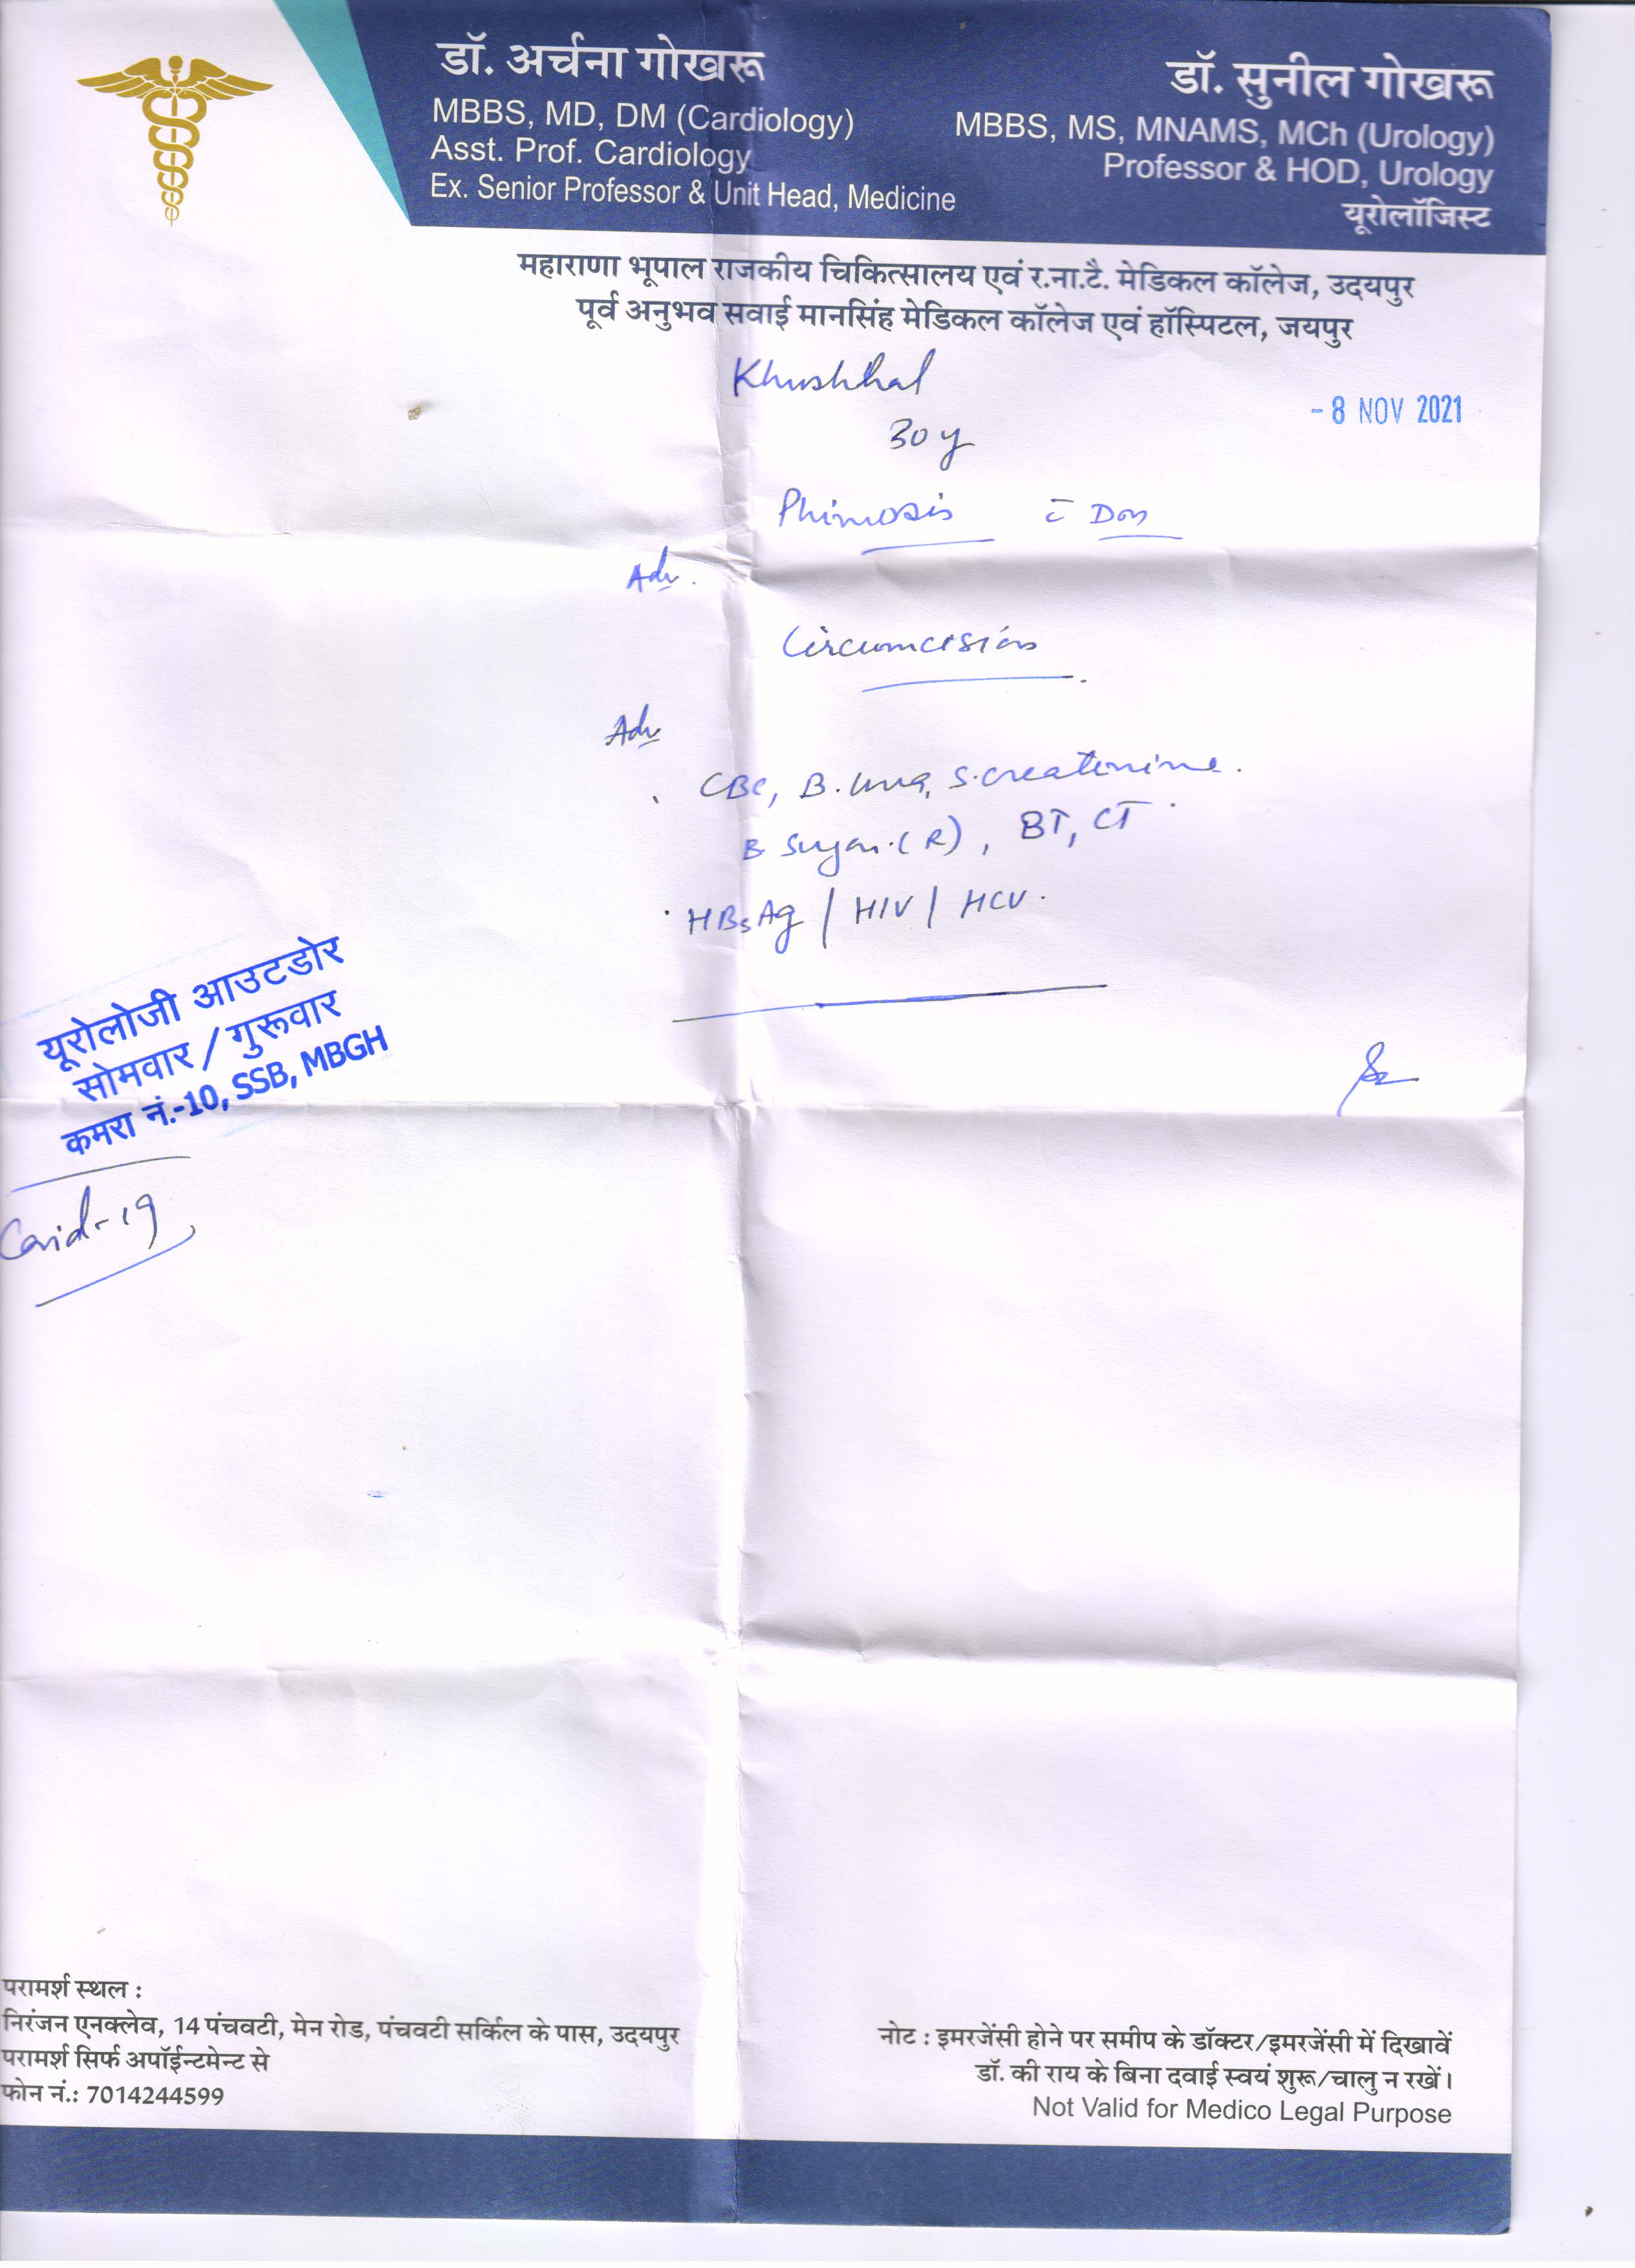 डॉ. अर्चना गोखरू
MBBS, MD, DM (Cardiology)
Asst. Prof. Cardiology
Ex. Senior Professor & Unit Head, Medicine
डॉ. सुनील गोखरू
MBBS, MS, MNAMS, MCh (Urology)
Professor & HOD, Urology
यूरोलॉजिस्ट
महाराणा भूपाल राजकीय चिकित्सालय एवं र.ना.टै. मेडिकल कॉलेज, उदयपुर
पूर्व अनुभव सवाई मानसिंह मेडिकल कॉलेज एवं हॉस्पिटल, जयपुर
Khushhal
- 8 NOV 2021
30 y
Phimosis c̄
Adv.
Circumcision
Adv
CBC, B. Urea, S. creatinine.
B Sugar (R), BT, CT
HBsAg / HIV / HCV.
यूरोलोजी आउटडोर
सोमवार/गुरूवार
कमरा नं.-10, SSB, MBGH
Covid-19
परामर्श स्थल :
निरंजन एनक्लेव, 14 पंचवटी, मेन रोड, पंचवटी सर्किल के पास, उदयपुर
परामर्श सिर्फ अपॉईन्टमेन्ट से
फोन नं.: 7014244599
नोट : इमरजेंसी होने पर समीप के डॉक्टर/इमरजेंसी में दिखावें
डॉ. की राय के बिना दवाई स्वयं शुरू/चालु न रखें।
Not Valid for Medico Legal Purpose